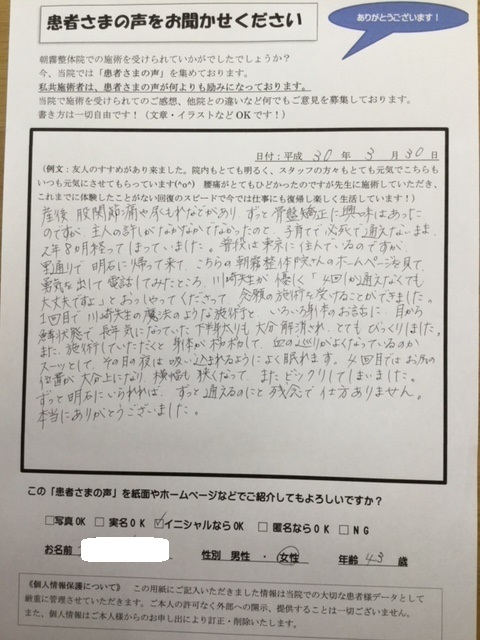 患者さまの声をお聞かせください
ありがとうございます!
朝霧整体院での施術を受けられていかがでしたでしょうか?
今、当院では「患者さまの声」を集めております。
私共施術者は、患者さまの声が何よりも励みになっております。
当院で施術を受けられてのご感想、他院との違いなど何でもご意見を募集しております。
書き方は一切自由です!(文章・イラストなどOKです!)
日付:平成 30 年 3 月 30 日
(例文:友人のすすめがあり来ました。院内もとても明るく、スタッフの方もとても元気でこちらも
いつも元気にさせてもらっています(^o^) 腰痛がとてもひどかったのですが先生に施術していただき、
これまでに体験したことがない回復のスピードで今では仕事にも復帰し楽しく生活しています!)
産後 股関節痛や尿もれなどがあり ずっと骨盤矯正に興味はあった
のですが、主人の許しがなかなかでなかったのと、子育てで必死で通えないまま
2年8か月経ってしまっていました。普段は東京に住んでいるのですが、
里通りで明石に帰って来て、こちらの朝霧整体院さんのホームページを見て、
勇気を出して電話してみたところ、川崎先生が優しく「4回しか通えなくても
大丈夫ですよ」とおっしゃってくださって、念願の施術を受けることができました。
1回目で川崎先生の魔法のような施術と、いろいろ身体のお話に、目から
鱗状態で、長年気になっていた下半身太りも大分解消され、とてもびっくりしました。
また、施術していただくと身体がポカポカして、血の巡りがよくなっているのか
スーッとして、その日の夜は吸い込まれるようによく眠れます。4回目ではお尻の
位置が大分上になり、横幅も狭くなって またビックリしてしまいました。
ずっと明石にいられれば、ずっと通えるのにと残念で仕方ありません。
本当にありがとうございました。
この「患者さまの声」を紙面やホームページなどでご紹介してもよろしいですか?
□写真OK □実名OK ☑イニシャルならOK □匿名ならOK □NG
お名前 性別 男性 ・ 女性 年齢 43 歳
《個人情報保護について》 この用紙にご記入いただきました情報は当院での大切な患者様データとして
厳重に管理させていただきます。ご本人の許可なく外部への開示、提供することは一切ございません。
また、個人情報はご本人様からのお申し出により訂正・削除いたします。